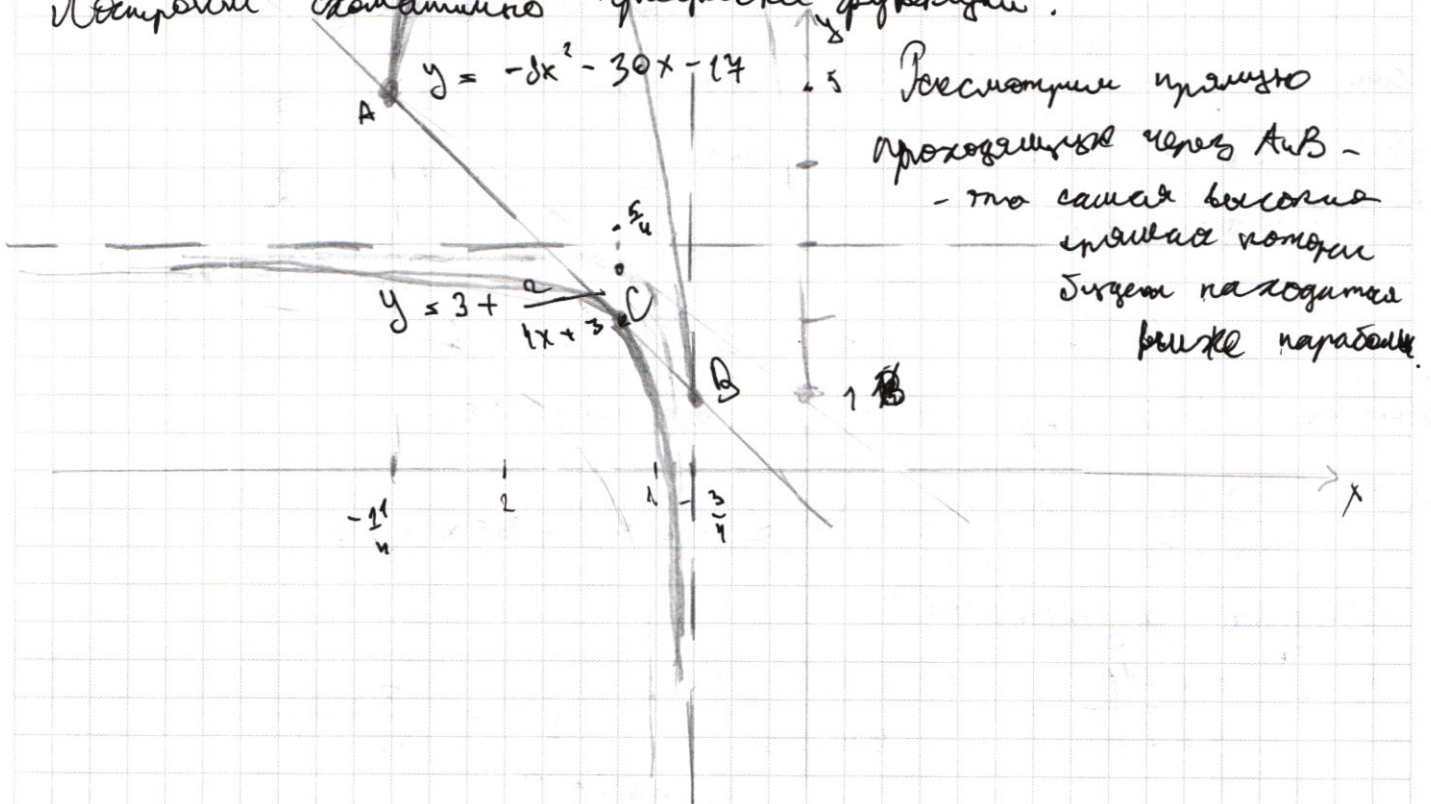 Построим схематично графики функции.
y
y = -8x² - 30x - 17
5
Рассмотрим прямую
A
проходящую через A и B -
- это самая высокая
5/4
прямая которая
будет находится
y = 3 + 2/(4x + 3)
C
ниже параболы.
B
1
-11/4
2
1
-3/4
x